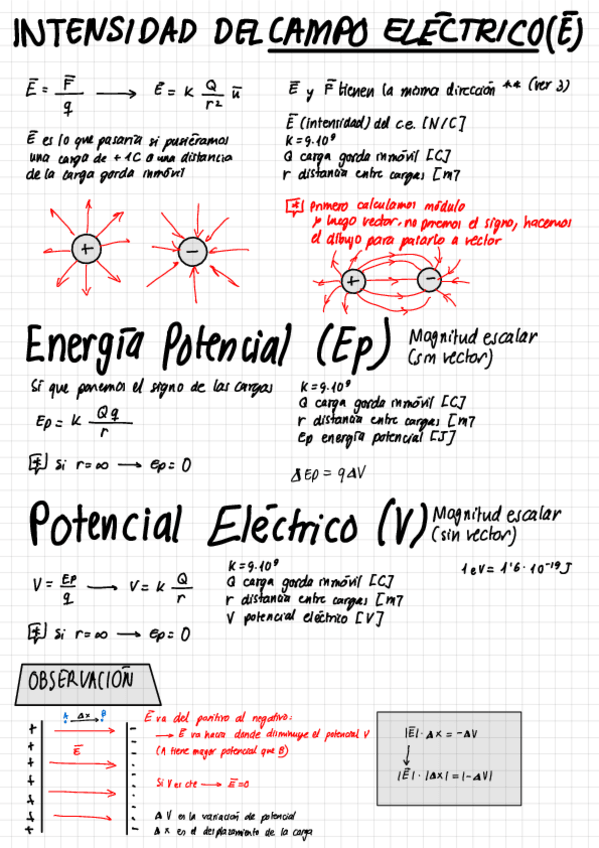 INTENSIDAD DEL CAMPO ELÉCTRICO (E̅)
E̅ = F̅/q → E̅ = K Q/r² u̅
E̅ y F̅ tienen la misma dirección ** (ver 3)
E̅ es lo que pasaría si pusiéramos
una carga de +1C a una distancia
de la carga gorda inmóvil
E̅ (intensidad) del c.e. [N/C]
K = 9·10⁹
Q carga gorda inmóvil [C]
r distancia entre cargas [m]
* primero calculamos módulo
y luego vector. no ponemos el signo, hacemos
el dibujo para pasarlo a vector
+
-
+
-
Energía Potencial (Ep)
Magnitud escalar
(sin vector)
Sí que ponemos el signo de las cargas
Ep = K Qq/r
* si r = ∞ → ep = 0
K = 9·10⁹
Q carga gorda inmóvil [C]
r distancia entre cargas [m]
Ep energía potencial [J]
ΔEp = qΔV
Potencial Eléctrico (V)
Magnitud escalar
(sin vector)
V = Ep/q → V = K Q/r
* si r = ∞ → ep = 0
K = 9·10⁹
Q carga gorda inmóvil [C]
r distancia entre cargas [m]
V potencial eléctrico [V]
1 eV = 1'6·10⁻¹⁹ J
OBSERVACIÓN
A Δx B
E̅
E̅ va del positivo al negativo:
→ E̅ va hacia donde disminuye el potencial V
(A tiene mayor potencial que B)
Si V es cte → E̅ = 0
ΔV es la variación de potencial
Δx es el desplazamiento de la carga
|E̅|·Δx = -ΔV
↓
|E̅|·|Δx| = |-ΔV|